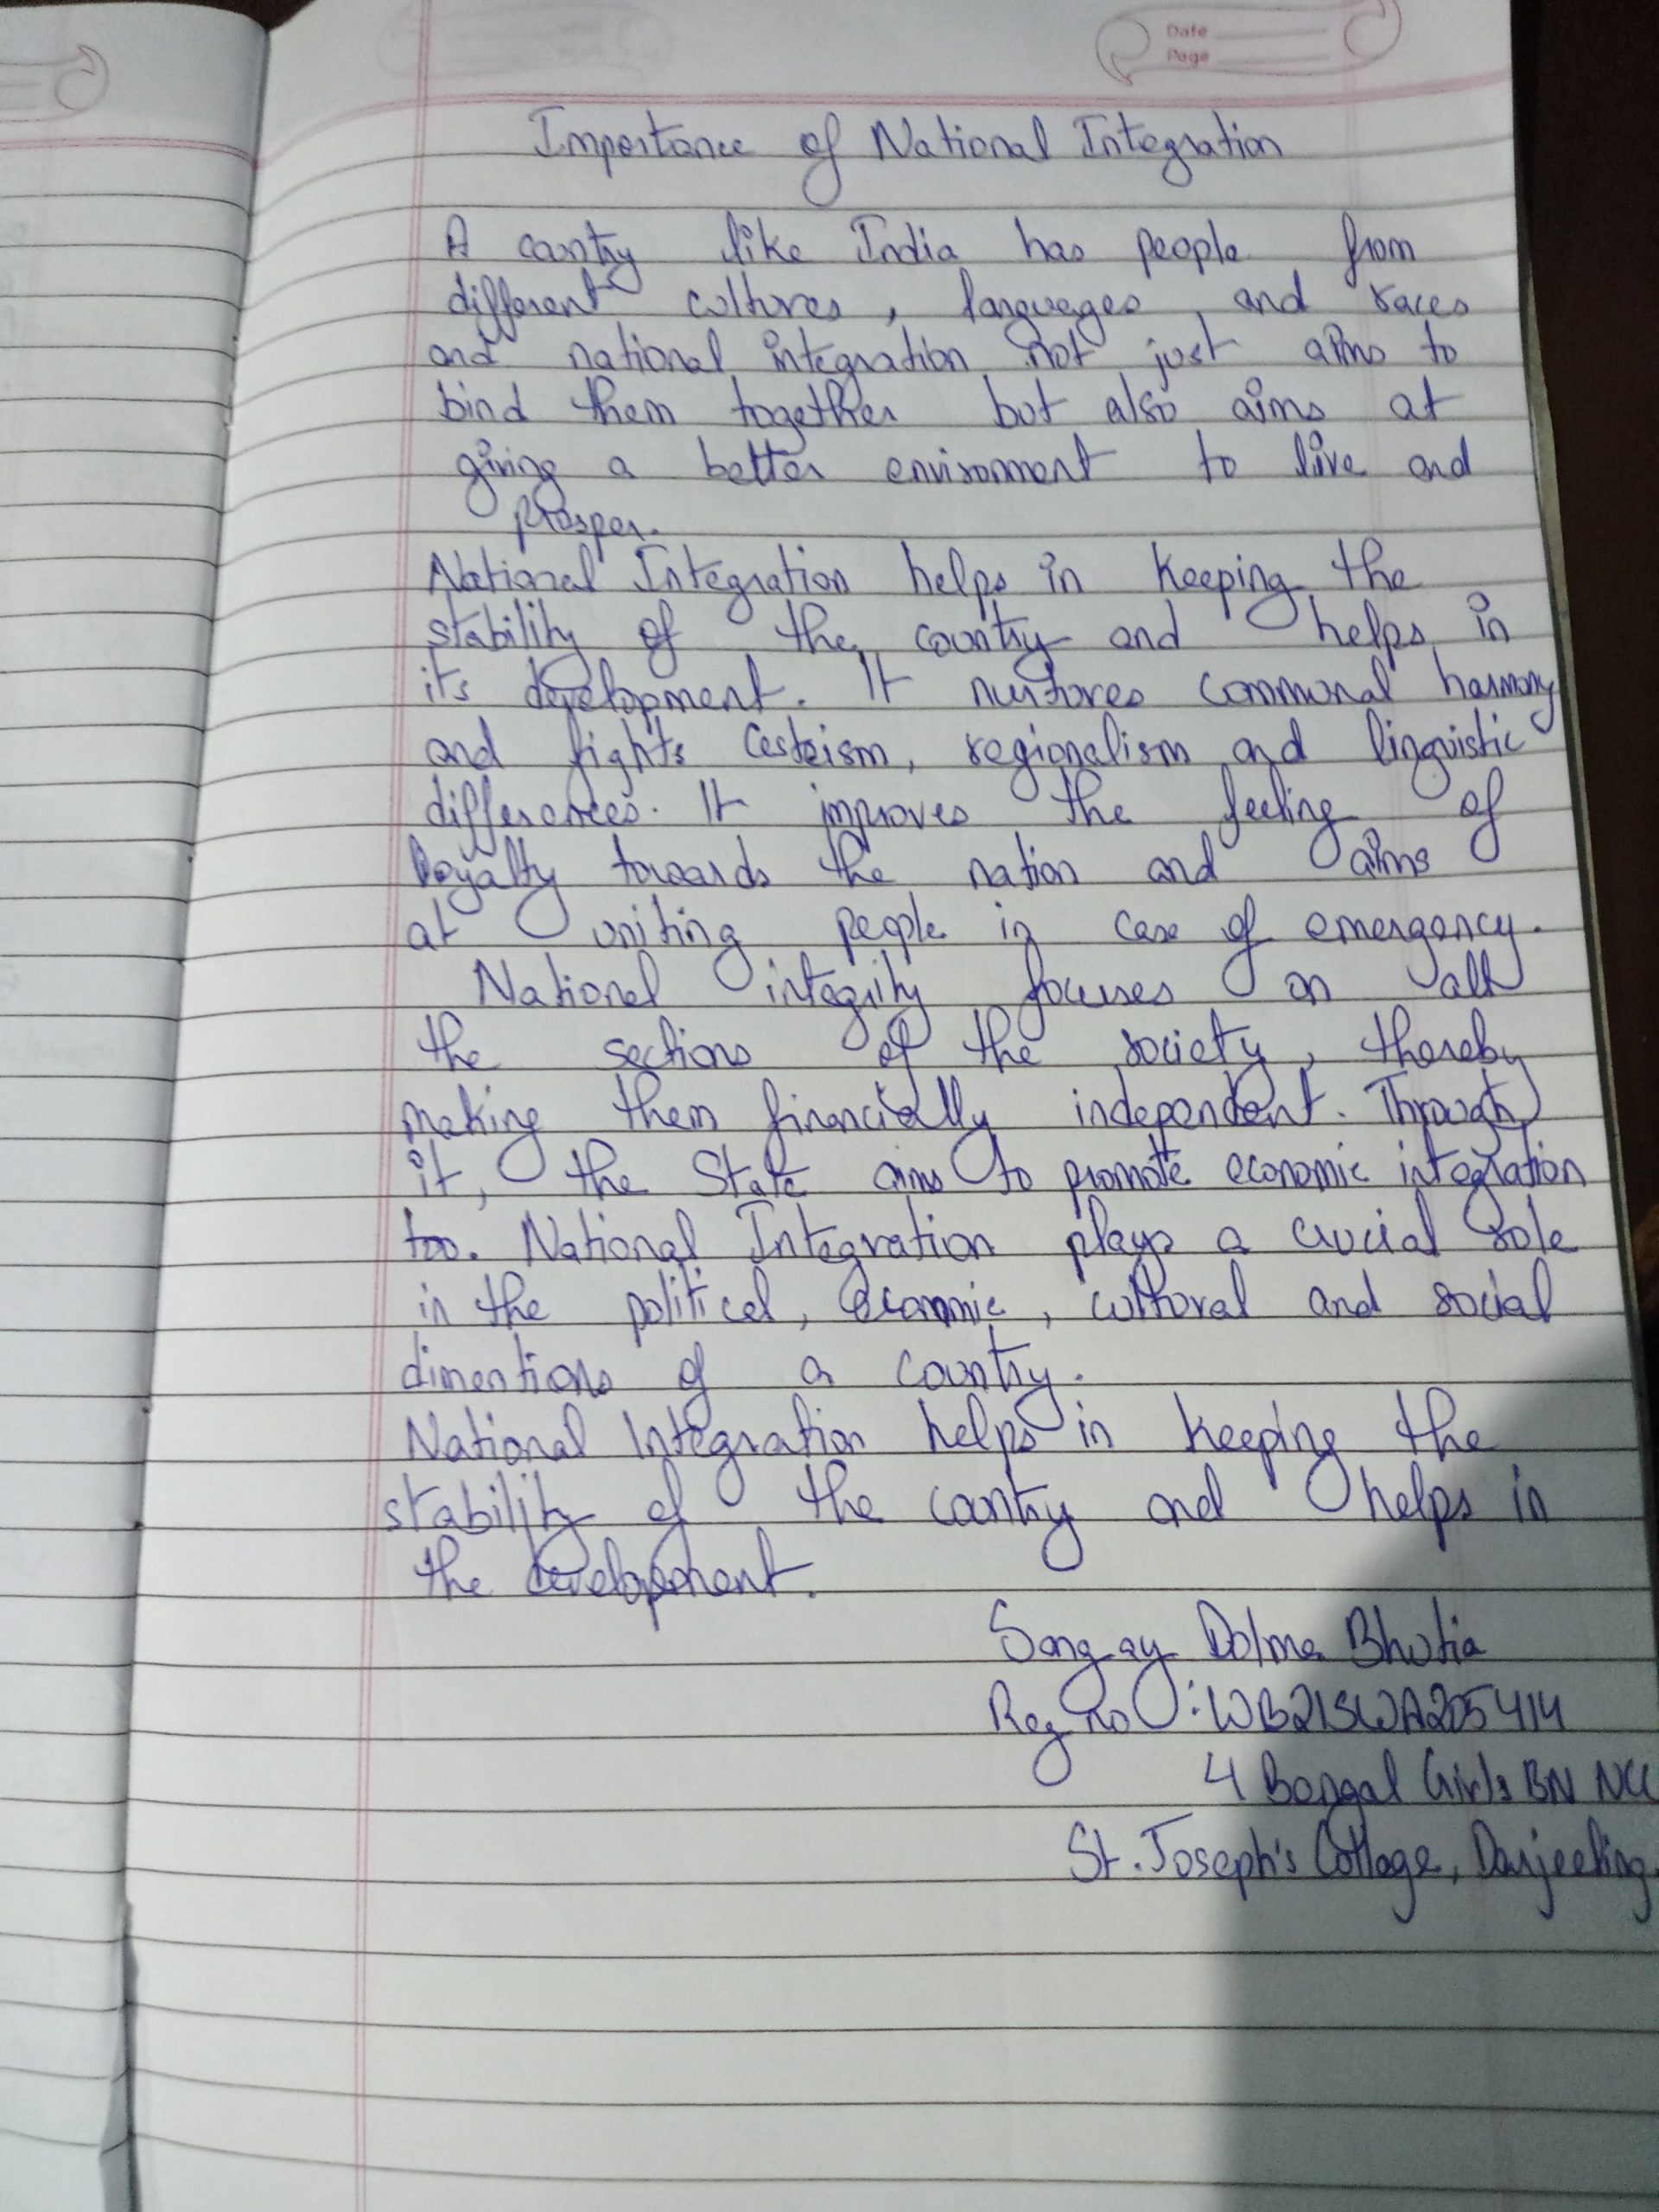 Date
Page
Importance of National Integration
A country like India has people from
different cultures, languages, and races
and national integration not just aims to
bind them together but also aims at
giving a better environment to live and
prosper.
National Integration helps in keeping the
stability of the country and helps in
its development. It nurtures communal harmony
and fights Casteism, regionalism and linguistic
differences. It improves the feeling of
loyalty towards the nation and aims
at uniting people in case of emergency.
National integrity focuses on all
the sections of the society, thereby
making them financially independent. Through
it, the State aims to promote economic integration
too. National Integration plays a crucial role
in the political, economic, cultural and social
dimentions of a country.
National Integration helps in keeping the
stability of the country and helps in
the development.
Sangay Dolma Bhutia
Reg no: WB21SWA205414
4 Bengal Girls BN NCC
St. Joseph's College, Darjeeling.